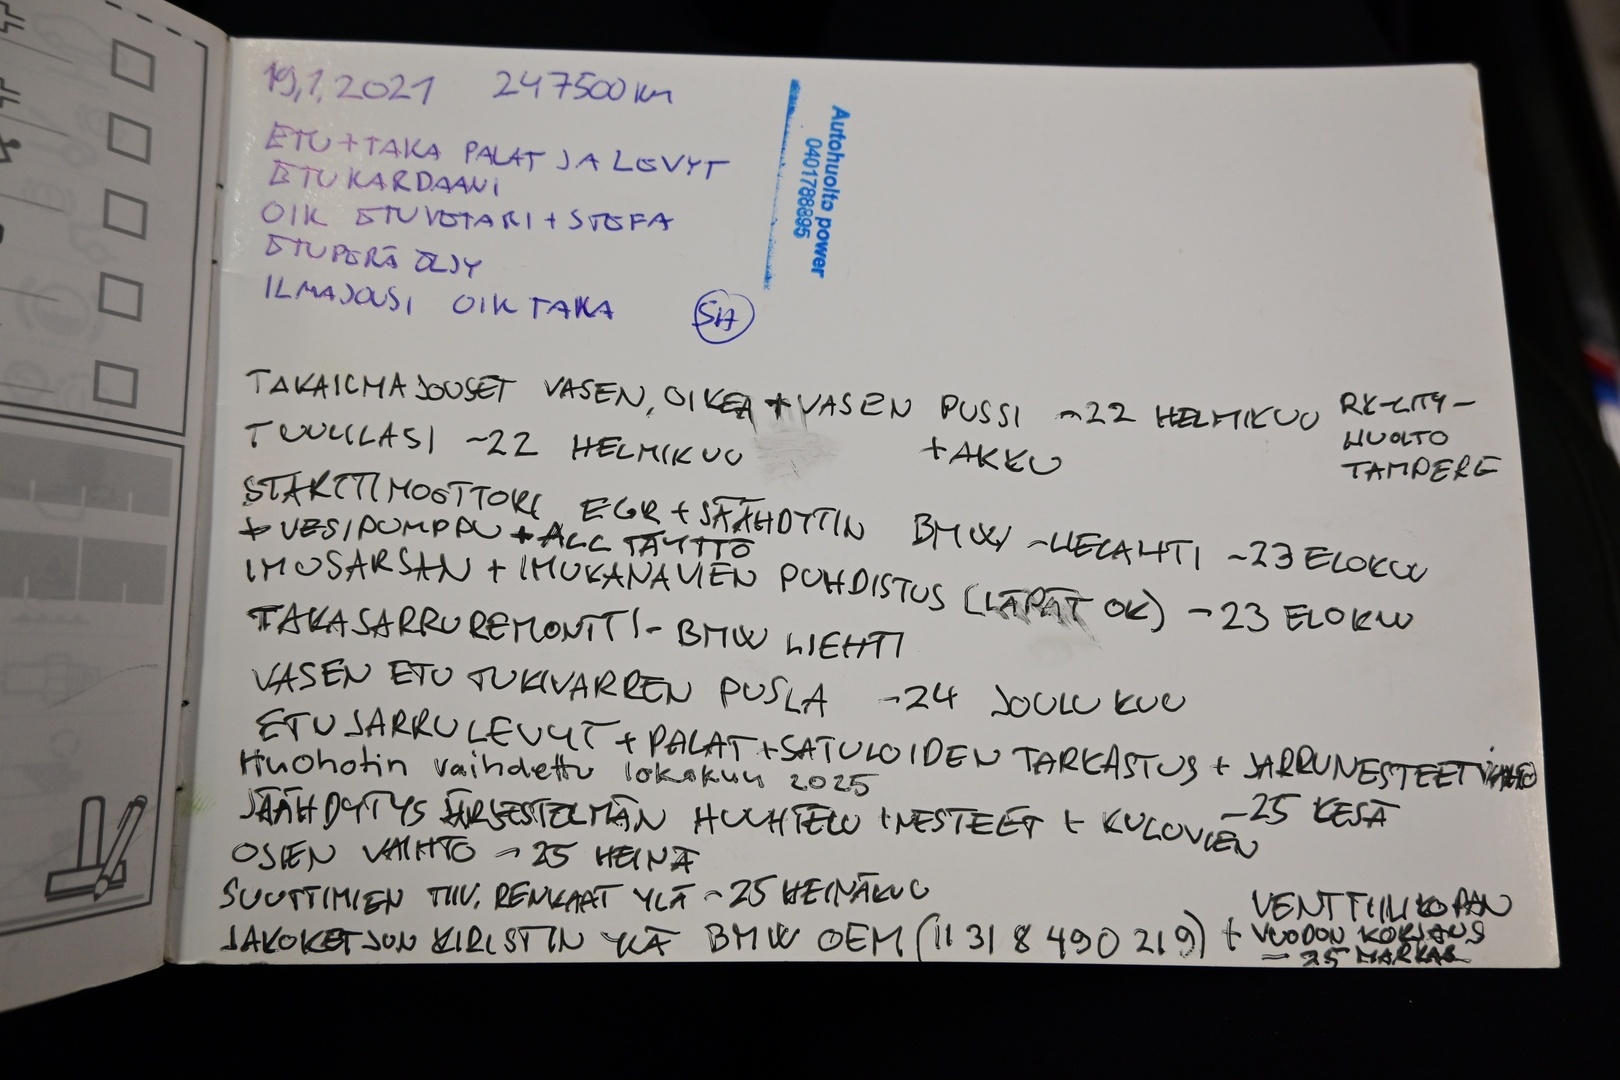 19.1.2021 247500 km
ETU+TAKA PALAT JA LEVYT
ETUKARDAANI
OIK ETUVETARI + STEFA
ETUPERÄ ÖLJY
ILMAJOUSI OIK TAKA
Autohuolto power
0401788895
TAKAILMAJOUSET VASEN, OIKEA + VASEN PUSSI ~22 HELMIKUU RK-CITY-
HUOLTO
TAMPERE
TUULILASI ~22 HELMIKUU + AKKU
STARTTIMOOTTORI EGR + JÄÄHDYTIN BMW ~ ~23 ELOKUU
+ VESIPUMPPU + ACC TÄYTTÖ
IMUSARJAN + IMUKANAVIEN PUHDISTUS (LÄPÄT OK) ~23 ELOKUU
TAKAJARRUREMONTTI - BMW LIEHTI
VASEN ETU TUKIVARREN PUSLA ~24 JOULUKUU
ETUJARRULEVYT + PALAT + SATULOIDEN TARKASTUS + JARRUNESTEET
Huohotin vaihdettu lokakuu 2025
~25 KESÄ
JÄÄHDYTYSJÄRJESTELMÄN HUUHTELU + NESTEET + KULUVIEN
OSIEN VAIHTO ~25 HEINÄ
SUUTTIMIEN TIIV. RENKAAT YLÄ ~25 HEINÄKUU
JAKOKETJUN KIRISTIN YLÄ BMW OEM (11 31 8 490 219) + VENTTIILIKOPAN
VUODON KORJAUS
~25 MARRAS